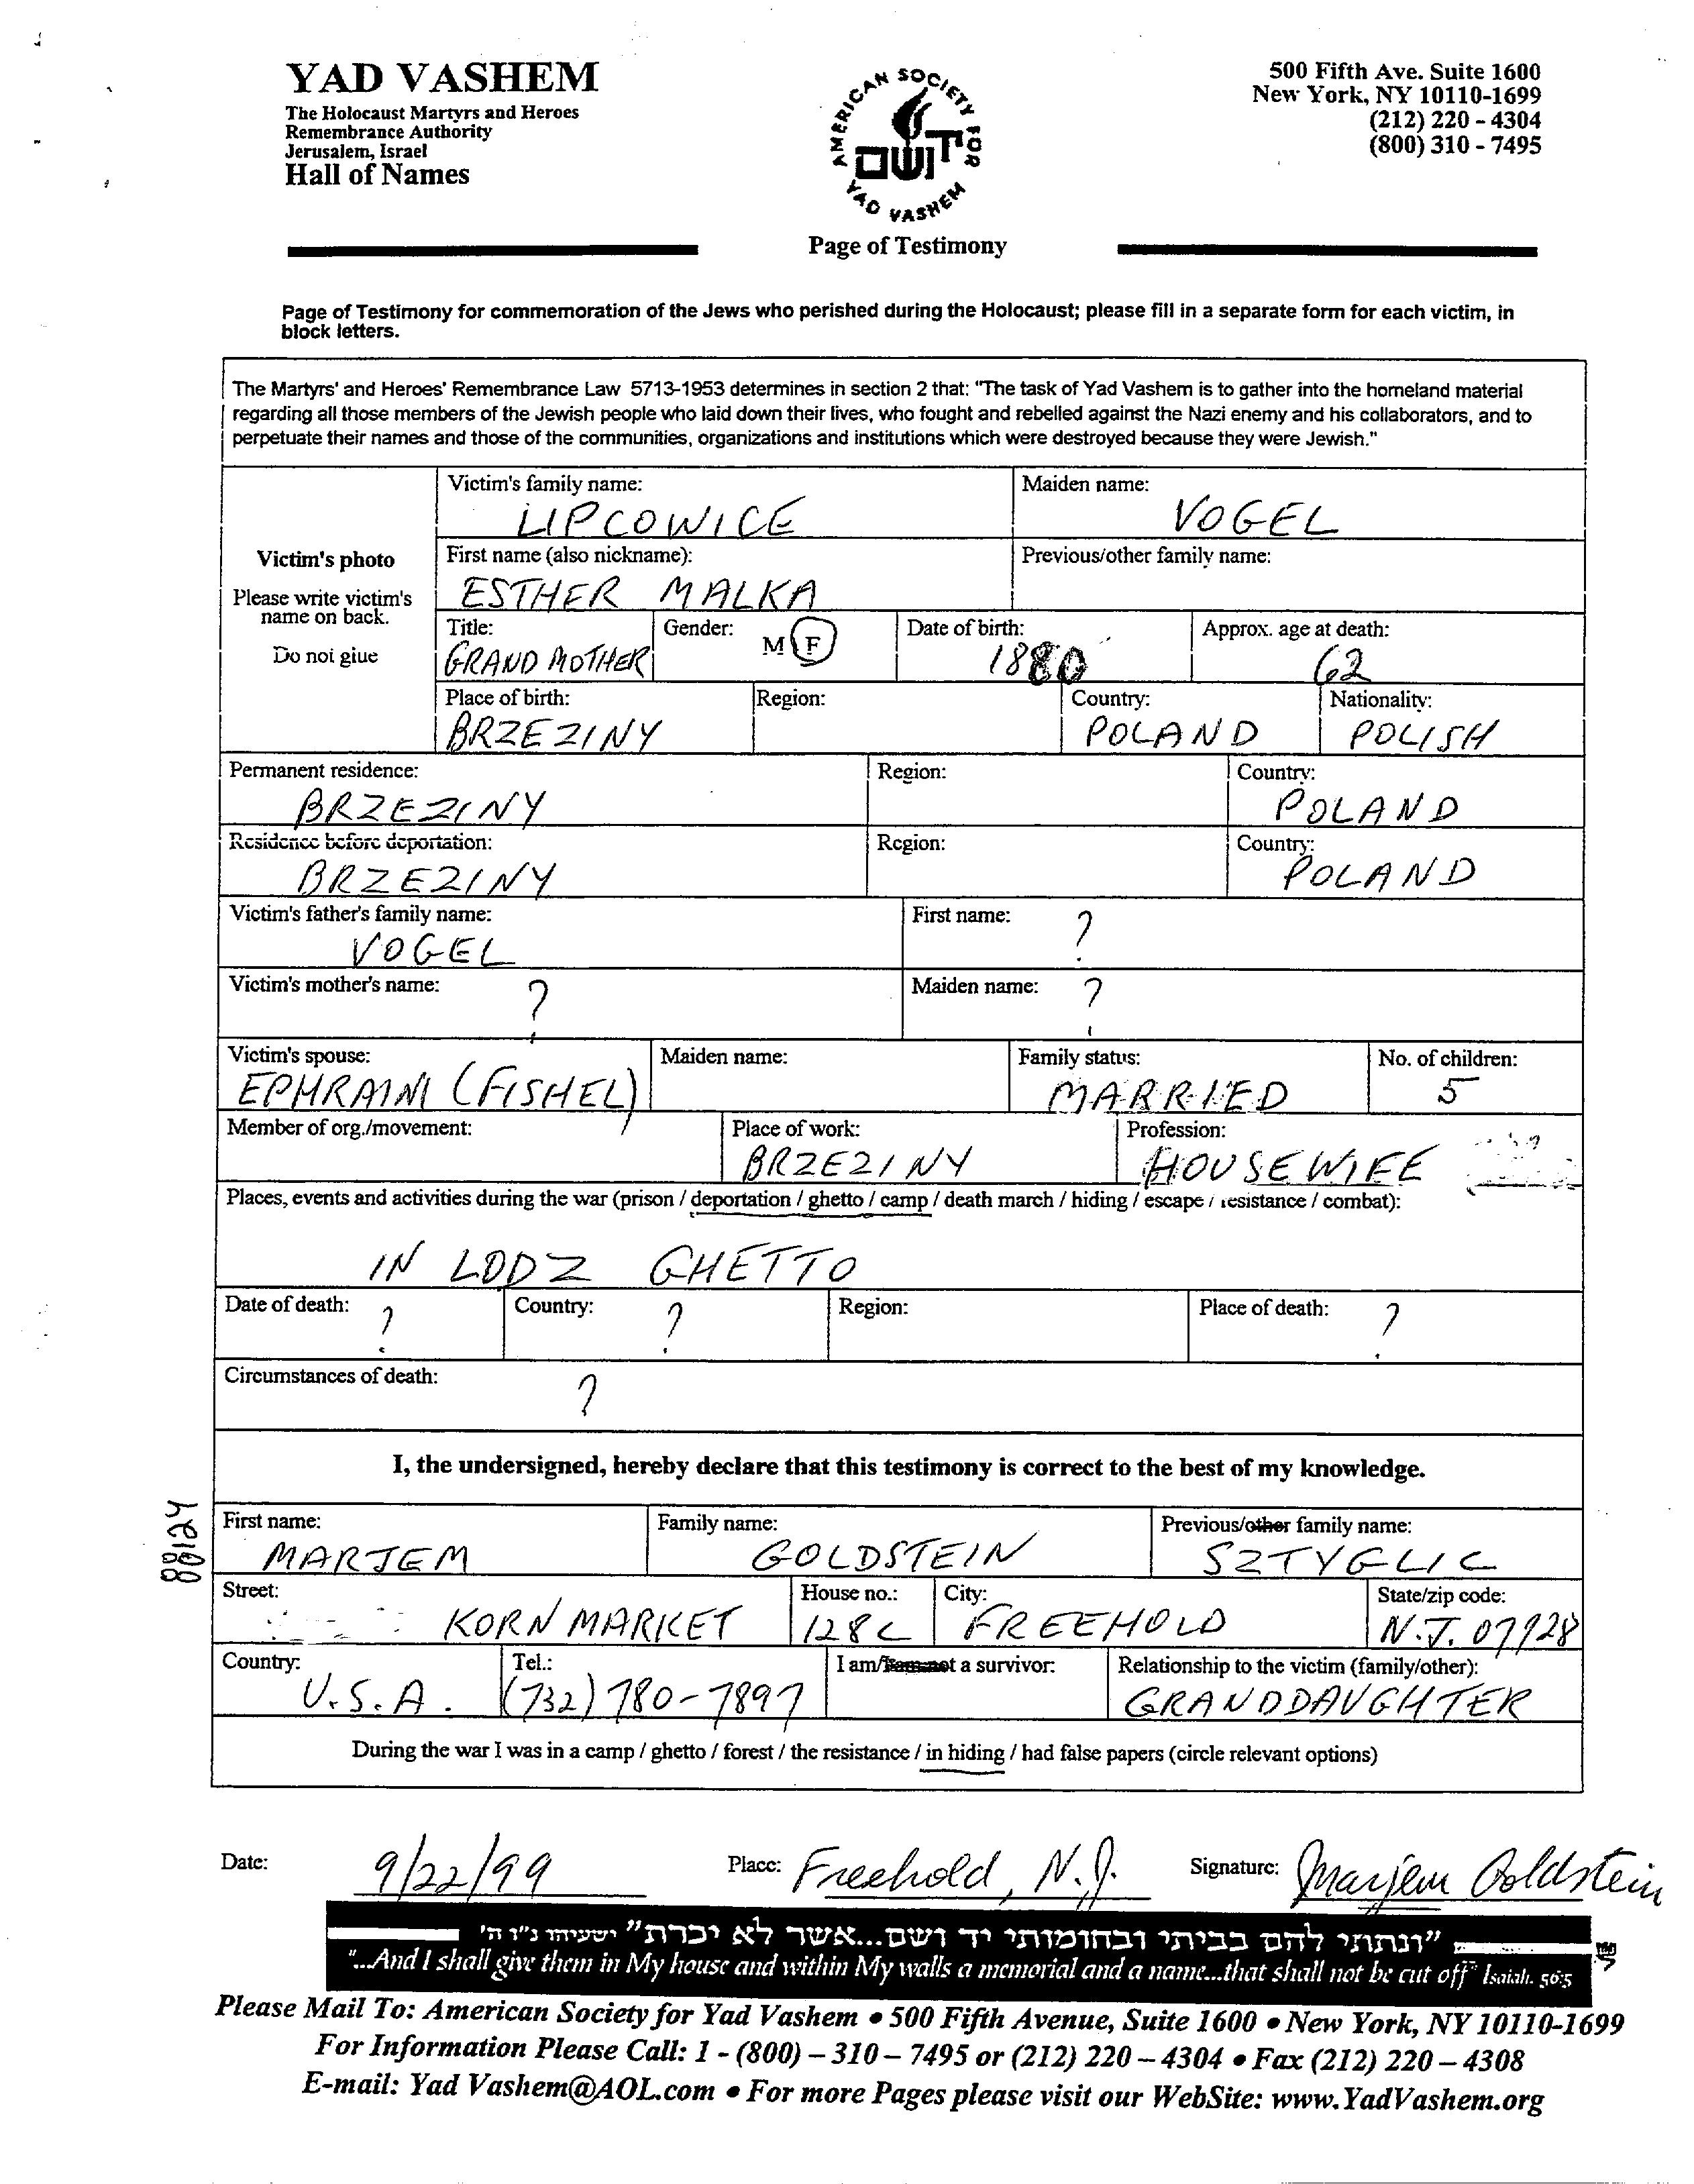 YAD VASHEM
The Holocaust Martyrs and Heroes
Remembrance Authority
Jerusalem, Israel
Hall of Names
AMERICAN SOCIETY FOR
יד ושם
YAD VASHEM
500 Fifth Ave. Suite 1600
New York, NY 10110-1699
(212) 220 - 4304
(800) 310 - 7495
Page of Testimony
Page of Testimony for commemoration of the Jews who perished during the Holocaust; please fill in a separate form for each victim, in
block letters.
The Martyrs' and Heroes' Remembrance Law 5713-1953 determines in section 2 that: "The task of Yad Vashem is to gather into the homeland material
regarding all those members of the Jewish people who laid down their lives, who fought and rebelled against the Nazi enemy and his collaborators, and to
perpetuate their names and those of the communities, organizations and institutions which were destroyed because they were Jewish."
Victim's photo
Please write victim's
name on back.
Do not glue
Victim's family name: Maiden name:
LIPCOWICE VOGEL
First name (also nickname): Previous/other family name:
ESTHER MALKA
Title: Gender: M F Date of birth: Approx. age at death:
GRANDMOTHER 1880 62
Place of birth: Region: Country: Nationality:
BRZEZINY POLAND POLISH
Permanent residence: Region: Country:
BRZEZINY POLAND
Residence before deportation: Region: Country:
BRZEZINY POLAND
Victim's father's family name: First name: ?
VOGEL
Victim's mother's name: ? Maiden name: ?
Victim's spouse: Maiden name: Family status: No. of children:
EPHRAIM (FISHEL) MARRIED 5
Member of org./movement: Place of work: Profession:
BRZEZINY HOUSEWIFE
Places, events and activities during the war (prison / deportation / ghetto / camp / death march / hiding / escape / resistance / combat):
IN LODZ GHETTO
Date of death: ? Country: ? Region: Place of death: ?
Circumstances of death: ?
I, the undersigned, hereby declare that this testimony is correct to the best of my knowledge.
88124
First name: Family name: Previous/other family name:
MARJEM GOLDSTEIN SZTYGLIC
Street: House no.: City: State/zip code:
KORN MARKET 128C FREEHOLD N.J. 07728
Country: Tel.: I am/I am not a survivor: Relationship to the victim (family/other):
U.S.A. (732) 780-7897 GRANDDAUGHTER
During the war I was in a camp / ghetto / forest / the resistance / in hiding / had false papers (circle relevant options)
Date: 9/22/99 Place: Freehold, N.J. Signature: Marjem Goldstein
"ונתתי להם בביתי ובחומותי יד ושם...אשר לא יכרת" ישעיהו נ"ו ה'
"...And I shall give them in My house and within My walls a memorial and a name...that shall not be cut off" Isaiah. 56:5
Please Mail To: American Society for Yad Vashem • 500 Fifth Avenue, Suite 1600 • New York, NY 10110-1699
For Information Please Call: 1 - (800) – 310 – 7495 or (212) 220 – 4304 • Fax (212) 220 – 4308
E-mail: Yad Vashem@AOL.com • For more Pages please visit our WebSite: www.YadVashem.org